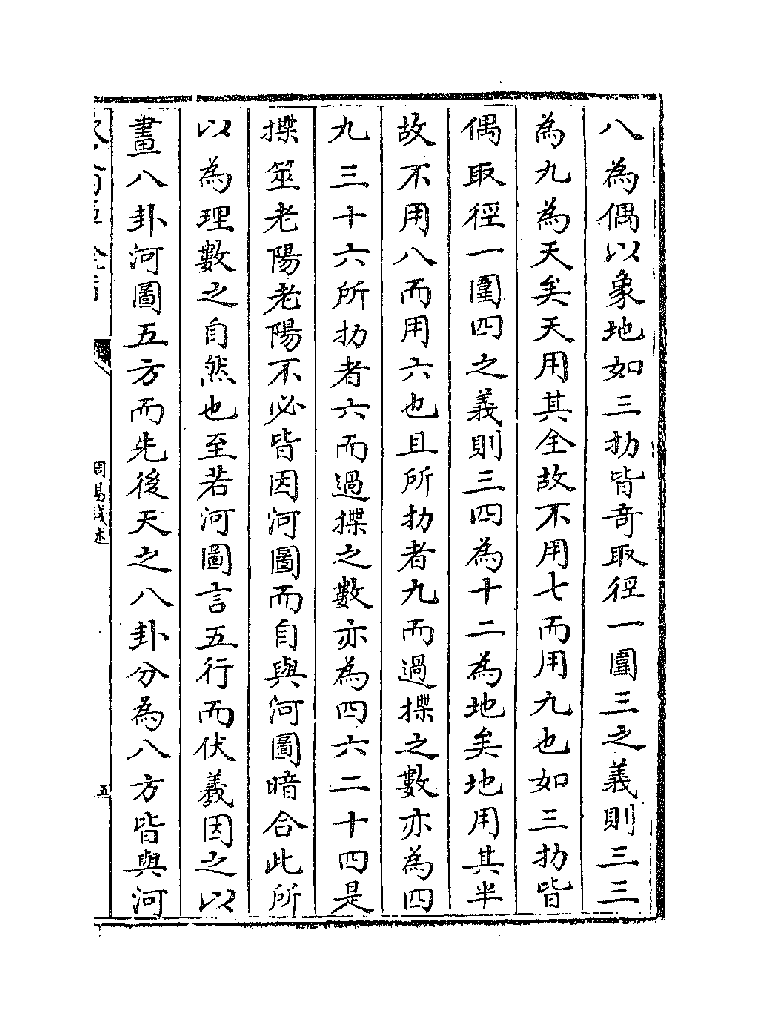 八為偶以象地如三扐皆奇取徑一圍三之義則三三
為九為天矣天用其全故不用七而用九也如三扐皆
偶取徑一圍四之義則三四為十二為地矣地用其半
故不用八而用六也且所扐者九而過揲之數亦為四
九三十六所扐者六而過揲之數亦為四六二十四是
揲筮老陽老陽不必皆因河圖而自與河圖暗合此所
以為理數之自然也至若河圖言五行而伏羲因之以
畫八卦河圖五方而先後天之八卦分為八方皆與河
周易淺述
五